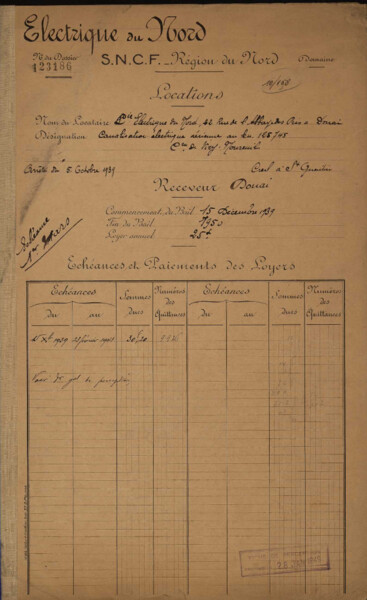 Electrique du Nord
N° du Dossier
S.N.C.F. - Région du Nord
Domaine
123186
Locations
Nom du Locataire Cie Electrique du Nord, 22 Rue de l'Abbaye des Prés à Douai
Désignation Canalisation électrique aérienne au km 165,745
Cne de
Arrêté du 5 Octobre 1939
Creil à St Quentin
Receveur Douai
Commencement de Bail 15 Décembre 1939
Fin de Bail
Loyer annuel 25f
Echéance
1er Mars
Echéances et Paiements des Loyers
Echéances
Sommes dues
Numéros des Quittances
Echéances
Sommes dues
Numéros des Quittances
du
au
du
au
15 Xbre 1939
30,20